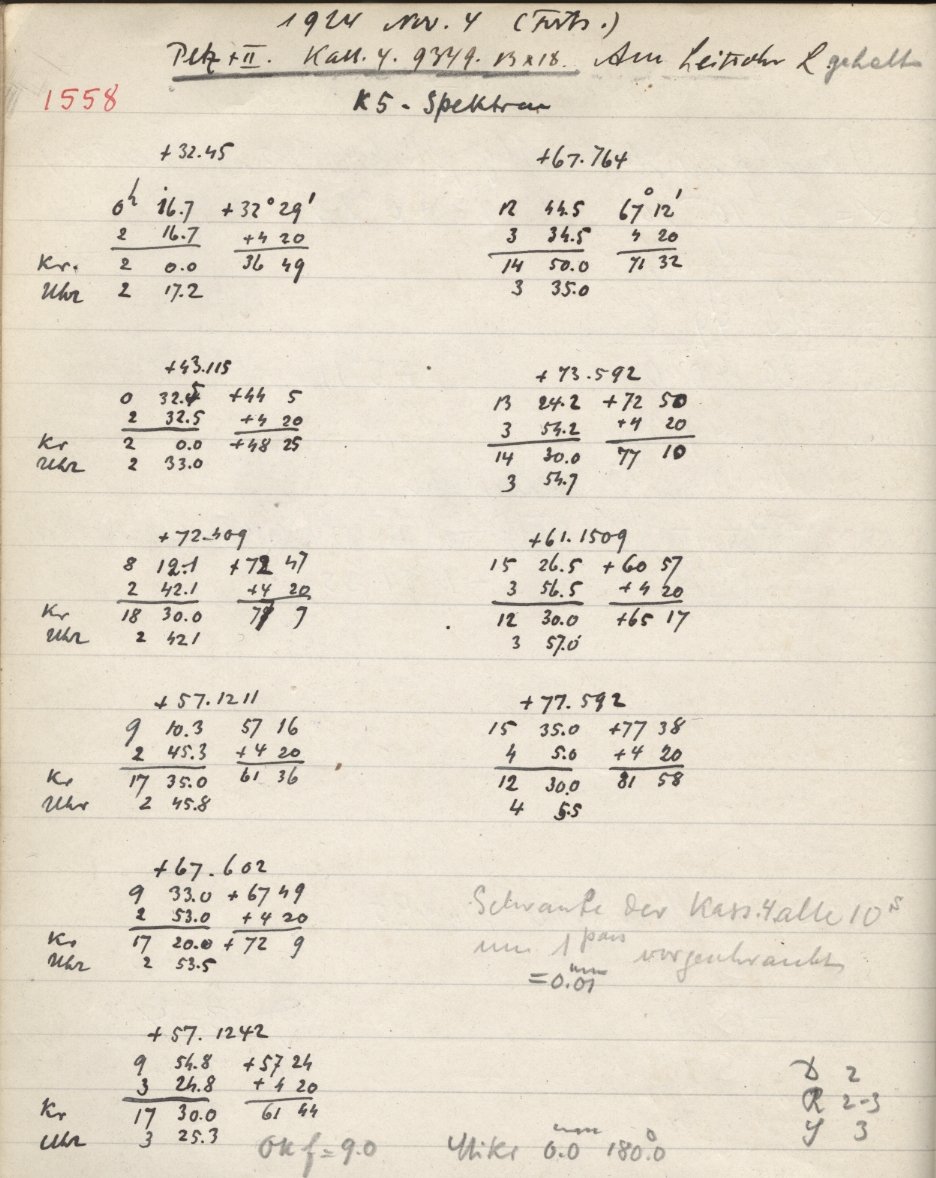 1924 Nov. 4 (Forts.)
Petz + II. Kass. 4. 9349. 13x18. Am Leitrohr L gehalten
1558
K5 - Spektren
+32.45
0h 16.7 +32° 29'
2 16.7 +4 20
Kr. 2 0.0 36 49
Uhr 2 17.2
+43.115
0 32.5 +44 5
2 32.5 +4 20
Kr 2 0.0 +48 25
Uhr 2 33.0
+72.409
8 12.1 +72 47
2 42.1 +4 20
Kr 18 30.0 77 7
Uhr 2 42.1
+57.1211
9 10.3 57 16
2 45.3 +4 20
Kr 17 35.0 61 36
Uhr 2 45.8
+67.602
9 33.0 +67 49
2 53.0 +4 20
Kr 17 20.0 +72 9
Uhr 2 53.5
+57.1242
9 54.8 +57 24
3 24.8 +4 20
Kr 17 30.0 61 44
Uhr 3 25.3
+67.764
12 44.5 67° 12'
3 34.5 4 20
14 50.0 71 32
3 35.0
+73.592
13 24.2 +72 50
3 54.2 +4 20
14 30.0 77 10
3 54.7
+61.1509
15 26.5 +60 57
3 56.5 +4 20
12 30.0 +65 17
3 57.0
+77.592
15 35.0 +77 38
4 5.0 +4 20
12 30.0 81 58
4 5.5
Schraube der Kass. 4 alle 10m
um 1 pars vorgeschraubt
=0.01mm
D 2
R 2-3
J 3
Ok f=9.0 Mikr 0.0mm 180.0°